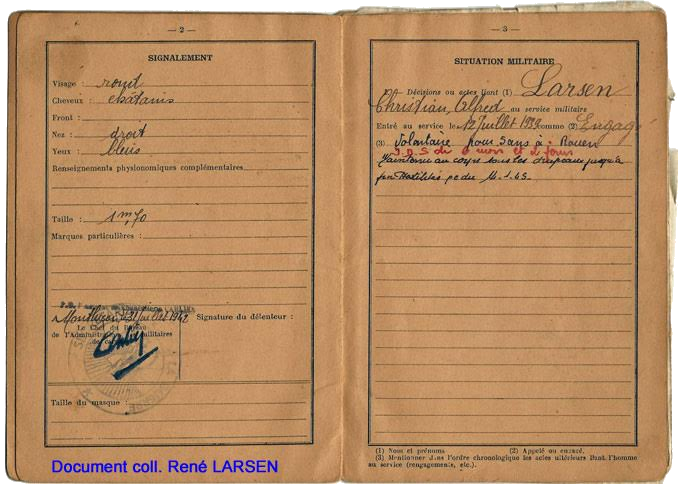 — 2 —
SIGNALEMENT
Visage : rond
Cheveux : châtains
Front :
Nez : droit
Yeux : bleus
Renseignements physionomiques complémentaires
Taille : 1m,70
Marques particulières :
A Montluçon 31 juillet 1942 Signature du détenteur :
Le Chef du Bureau
de l'Administration militaires
Taille du masque :
Document coll. René LARSEN
— 3 —
SITUATION MILITAIRE
Décisions ou actes liant (1) Larsen
Christian, Alfred au service militaire
Entré au service le 12 Juillet 1939 comme (2) Engagé
(3) Volontaire pour 3 ans à Rouen
Maintenu au corps sous les drapeaux jusqu'à
fin Hostilités
(1) Noms et prénoms (2) Appelé ou engagé.
(3) Mentionner dans l'ordre chronologique les actes ultérieurs liant l'homme
au service (rengagements, etc.).